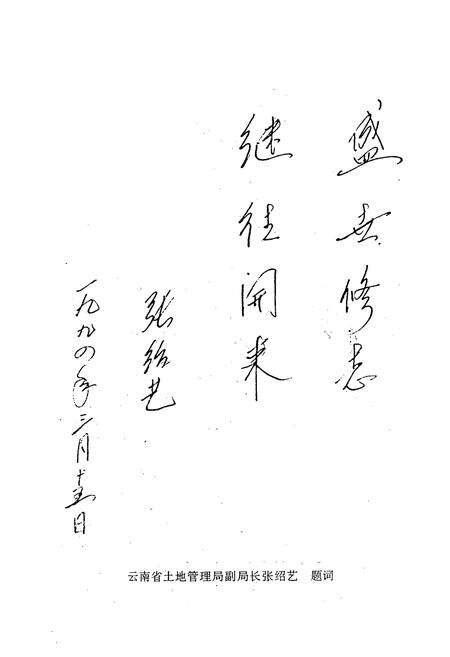 盛世修志
继往开来
张绍艺
一九九四年三月十五日
云南省土地管理局副局长张绍艺 题词